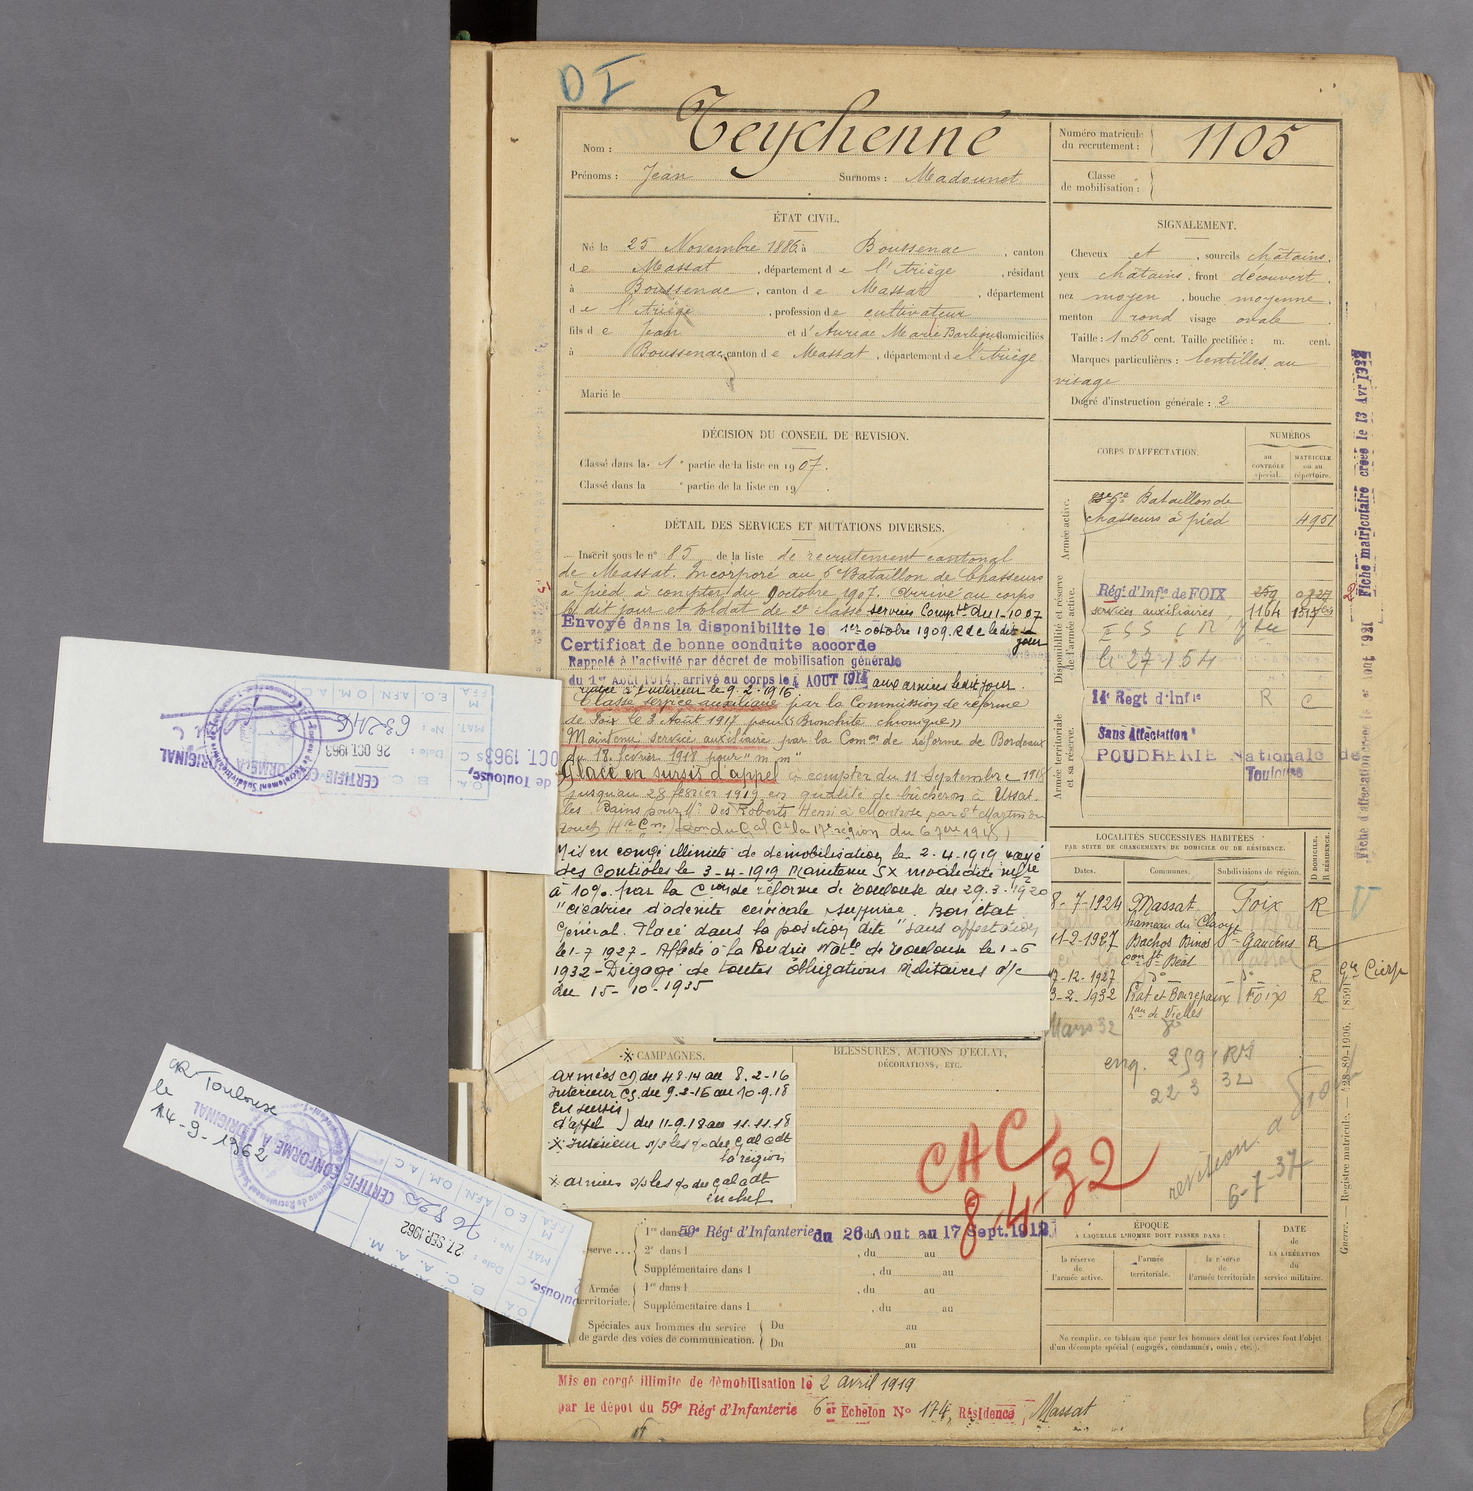 DI
Nom : Teychenné
Prénoms : Jean Surnoms : Madounet
Numéro matricule du recrutement : 1105
Classe de mobilisation :
ÉTAT CIVIL.
Né le 25 Novembre 1886, à Boussenac, canton
de Massat, département de l'Ariège, résidant
à Boussenac, canton de Massat, département
de l'Ariège, profession de cultivateur
fils de Jean et d'Auriac Marie domiciliés
à Boussenac, canton de Massat, département de l'Ariège
Marié le
SIGNALEMENT.
Cheveux et , sourcils châtains.
yeux châtains, front découvert
nez moyen, bouche moyenne
menton rond visage ovale
Taille : 1 m 66 cent. Taille rectifiée : m. cent.
Marques particulières : lentilles au
visage
Degré d'instruction générale : 2
DÉCISION DU CONSEIL DE REVISION.
Classé dans la 1e partie de la liste en 1907.
Classé dans la e partie de la liste en 19
DÉTAIL DES SERVICES ET MUTATIONS DIVERSES.
Inscrit sous le n° 85 de la liste de recrutement cantonal
de Massat. Incorporé au 6e Bataillon de Chasseurs
à pied à compter du 9 octobre 1907. Arrivé au corps
le dit jour et soldat de 2e classe services Compt du 1-10 07
Envoyé dans la disponibilite le 1er octobre 1909. R d C le dit jour
Certificat de bonne conduite accorde
Rappelé à l'activité par décret de mobilisation générale
du 1er Aout 1914, arrivé au corps le 4 AOUT 1914 aux armées le dit jour.
rentré à l'intérieur le 9.2.1916
Classé service auxiliaire par la Commission de réforme
de Foix le 3 Août 1917 pour "Bronchite chronique"
Maintenu service auxiliaire par la Comon de réforme de Bordeaux
du 18 février 1918 pour "m m"
Placé en sursis d'appel à compter du 11 Septembre 1918
jusqu'au 28 février 1919 en qualité de bûcheron à Ussat
les Bains pour Mr Des Roberts Henri à Montrose par St Martin du
Touch Hte Gne
Mis en congé illimité de démobilisation le 2.4.1919 rayé
des contrôles le 3-4-1919 Maintenu SX invalidité infre
à 10% par la Cion de réforme de Toulouse du 29.3.1920
"cicatrice d'adénite cervicale suppurée. Bon état
général. Placé dans la position dite "sans affectation
le 1-7 1927 - Affecté à la Poudrie Natle de Toulouse le 1-6
1932 - Dégagé de toutes obligations militaires d/c
du 15-10-1935
CORPS D'AFFECTATION.
NUMÉROS
au CONTRÔLE spécial.
MATRICULE ou au répertoire.
Armée active.
6e Bataillon de
chasseurs à pied 4951
Disponibilité et réserve de l'armée active.
Régt d'Infie de FOIX 259
services auxiliaires 1164
le 27 1 54
Armée territoriale et sa réserve.
14e Regt d'Infie R C
Sans Affectation
POUDRERIE Nationale de
Toulouse
LOCALITÉS SUCCESSIVES HABITÉES
PAR SUITE DE CHANGEMENTS DE DOMICILE OU DE RÉSIDENCE.
Dates. Communes. Subdivisions de région. D DOMICILE. R RÉSIDENCE.
8-7-1924 Massat Foix R
hameau du Claout
11-2-1927 Bachos Binos St Gaudens R
con St Béat
17-12-1927 do do R Gie Cierp
3-2-1932 Prat et Bonrepaux Foix R
hau de Vielles
Mars 32 do
enq. 259 RI
22 3 32
revision
6-7-37
CAC
8.4.32
CAMPAGNES.
Armées CD du 4.8.14 au 8.2-16
Intérieur CS du 9.2-16 au 10.9.18
En sursis
d'appel } du 11-9.18 au 11.11.18
BLESSURES, ACTIONS D'ÉCLAT,
DÉCORATIONS, ETC.
1re dans 59e Régt d'Infanterie du 26 Aout au 17 Sept. 1912
2e dans l , du au
Supplémentaire dans l , du au
Armée territoriale.
1re dans l , du au
Supplémentaire dans l , du au
Spéciales aux hommes du service
de garde des voies de communication.
Du au
Du au
ÉPOQUE
À LAQUELLE L'HOMME DOIT PASSER DANS :
la réserve de l'armée active.
l'armée territoriale.
la réserve de l'armée territoriale
DATE
de
LA LIBÉRATION
du
service militaire.
Ne remplir ce tableau que pour les hommes dont les services font l'objet
d'un décompte spécial (engagés, condamnés, omis, etc.).
Mis en congé illimité de démobilisation le 2 avril 1919
par le dépot du 59e Régt d'Infanterie 6er Echelon No 174, Résidence, Massat
Fiche matriculaire créée le 13 Avr 1932
Guerre. — Registre matricule. — 28-89-1906. [8591]
CERTIFIE CONFORME A L'ORIGINAL
Date : 26 OCT. 1963
No : 63216
de Toulouse,
GR Toulouse
le
14-9-1962
CERTIFIE CONFORME A L'ORIGINAL
Date : 27. SEP. 1962